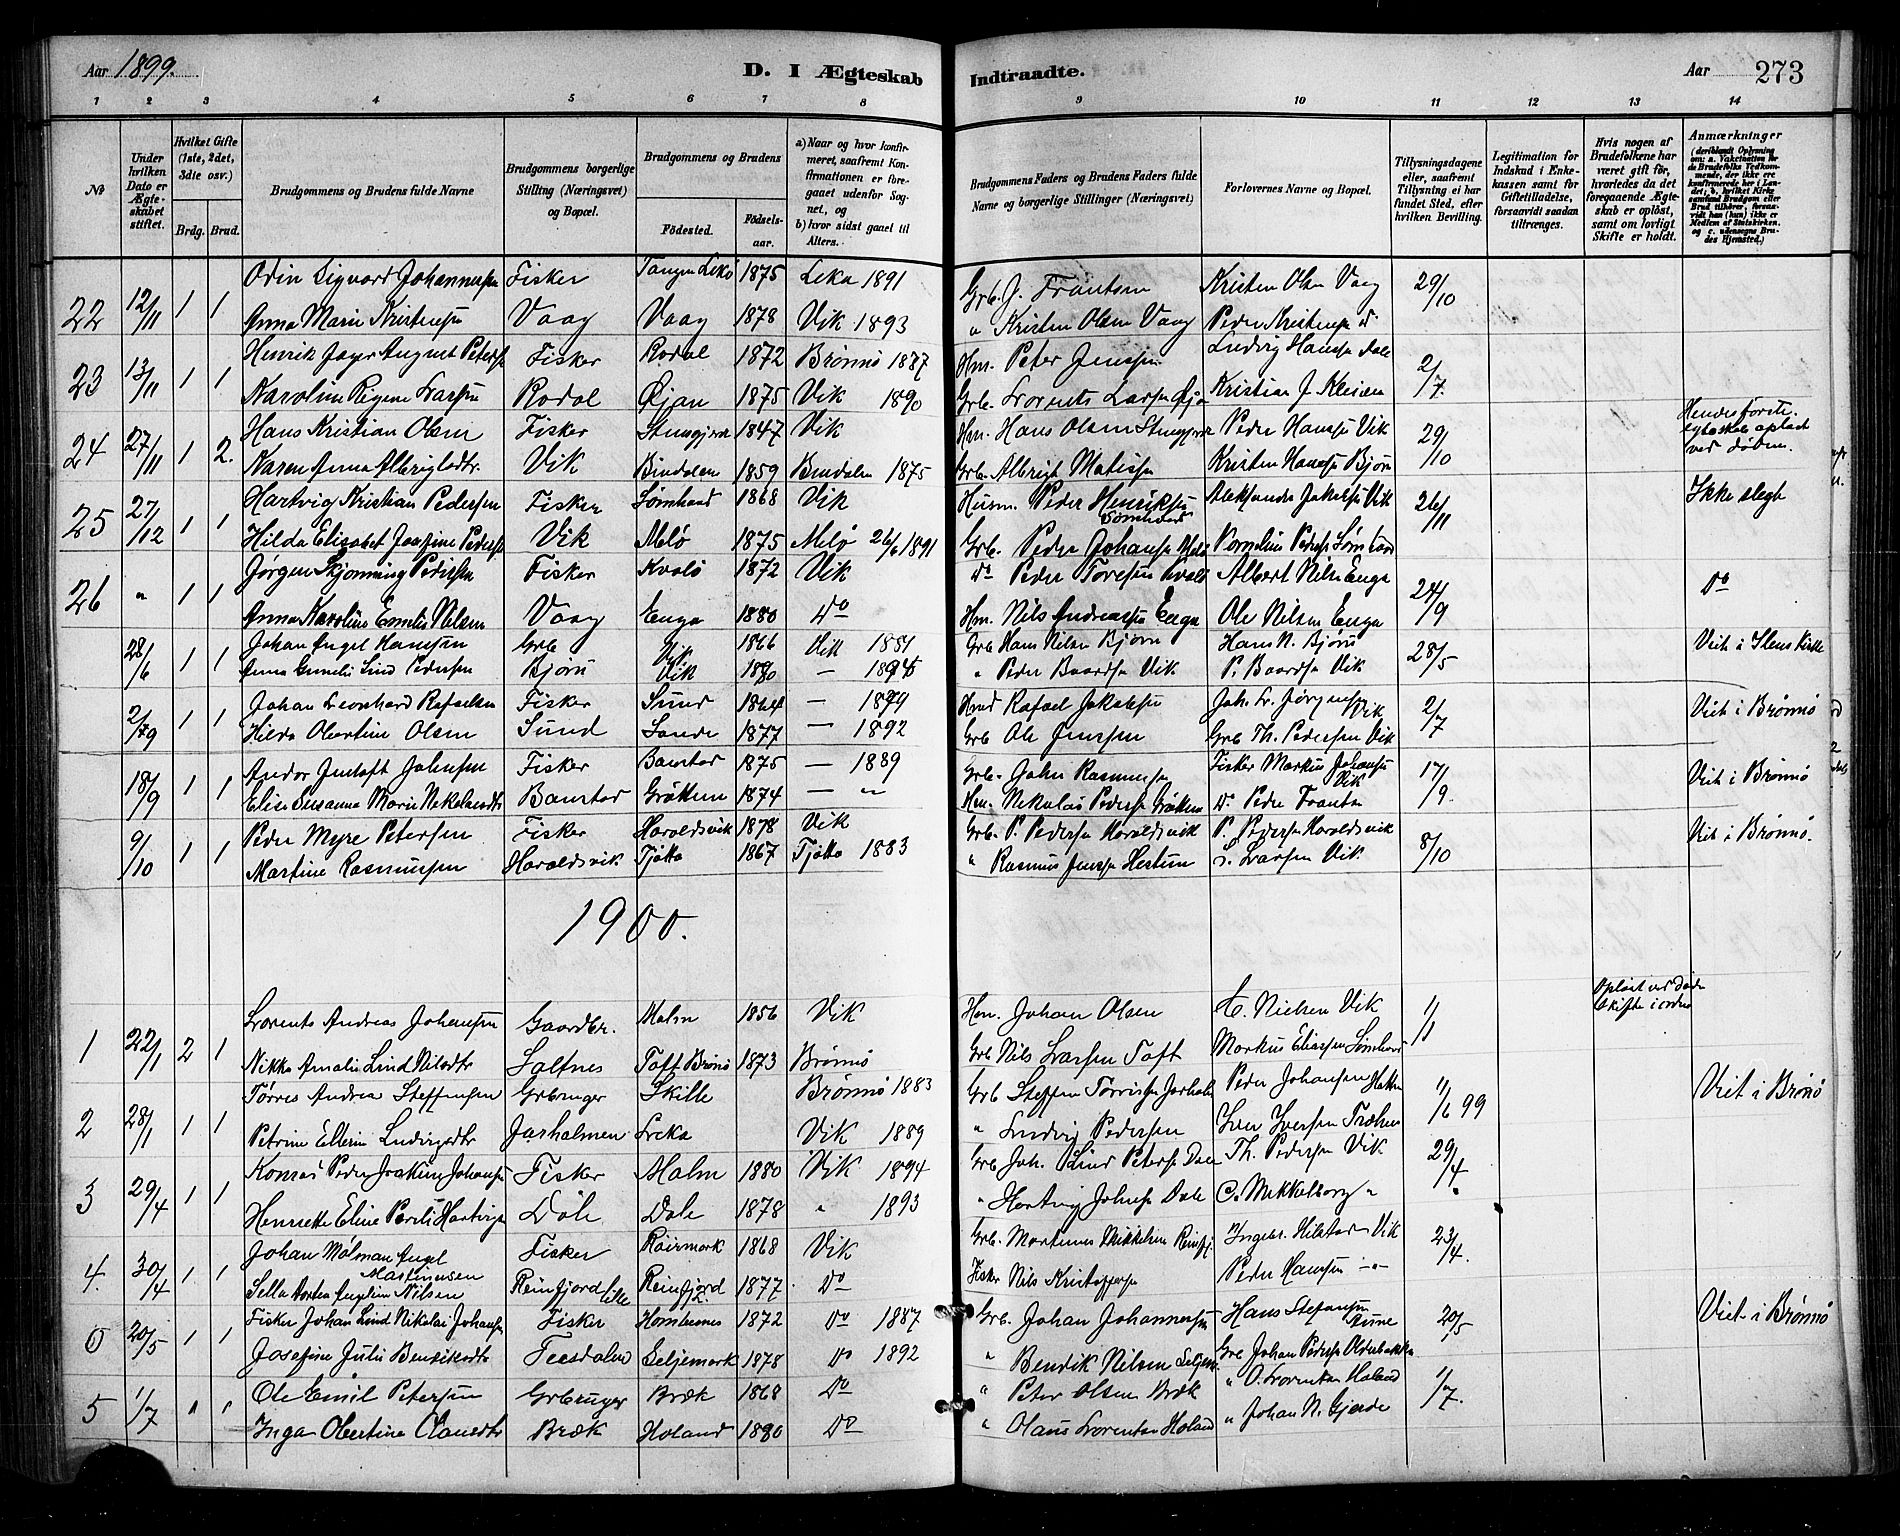 Aar 1899.
D. I Ægteskab Indtraadte.
Aar 273
1 2 3 4 5 6 7 8 9 10 11 12 13 14
No
Under hvilken Dato er Ægteskabet stiftet.
Hvilket Gifte (1ste, 2det, 3die osv.)
Brdg. Brud.
Brudgommens og Brudens fulde Navne
Brudgommens borgerlige Stilling (Næringsvei) og Bopæl.
Brudgommens og Brudens
Fødested. Fødselsaar.
a) Naar og hvor konfirmeret, saafremt Konfirmationen er foregaaet udenfor Sognet, og
b) hvor sidst gaaet til Alters.
Brudgommens Faders og Brudens Faders fulde Navne og borgerlige Stillinger (Næringsvei)
Forlovernes Navne og Bopæl.
Tillysningsdagene eller, saafremt Tillysning ei har fundet Sted, efter hvilken Bevilling.
Legitimation for Indskud i Enkekassen samt for Giftetilladelse, forsaavidt saadan tiltrænges.
Hvis nogen af Brudefolkene har været gift før, hvorledes da det foregaaende Ægteskab er opløst, samt om lovligt Skifte er holdt.
Anmærkninger
(deriblandt Oplysning om: a. Vaksination for de Brudefolks Vedkommende, der ikke ere konfirmerede her i Landet; b. hvilket Kirkesamfund Brudgom eller Brud tilhører, forsaavidt han (hun) ikke er Medlem af Statskirken, og c. udensogns Brudes Hjemsted.)
22 12/11 1 1 Odin Sigvard Johannessen Fisker Tangen Lekø 1875 Leka 1891 Grb. J. Frantsen Kristen Olsen Vaag 29/10
Anna Marie Kristensen Vaag Vaag 1878 Vik 1893 " Kristen Olsen Vaag Peder Kristensen
23 13/11 1 1 Henrik August Peters Fisker Rodal 1872 Brønnø 1887 Hm. Peter Jenssen Ludvig Hansen Dale 2/7
Karoline Regine Larsen Rodal Øjan 1875 Vik 1890 Grb. Lorents Larsen Kristian J.
24 27/11 1 2. Hans Kristian Olsen Fisker 1847 Vik Hm. Hans Olsen Peder Hansen Vik 29/10 Hendes første opløst ved Døden.
Karen Anna Albrigtsdtr Vik Bindalen 1859 Bindalen 1875 Grb. Albrigt Matissen Kristen Hansen Bjørn
25 27/12 1 1 Hartvig Kristian Pedersen Fisker Sømhovd 1868 Vik Husm. Peder Henriksen Sømhovd Aleksander Jakobsen Vik 26/11 Ikke slegt
Hilda Elisabet Josefine Peders Vik Melø 1875 Melø 26/6 1891 Grb. Peder Johansen Melø Kornelius Pedersen Sømhovd
26 " 1 1 Jørgen Pedersen Fisker Kvalø 1872 Vik Do Peder Toresen Kvalø Albert Nilsen Enga 24/9 Do
Anna Karoline Emelie Nilsen Vaag Enga 1880 Do Hm. Nils Andreassen Enga Ole Nilsen Enga
28/6 1 1 Johan Angel Hansen Grb Vik 1866 Vik 1881 Grb Hans Nilsen Bjørn Hans N. Bjørn 28/5 Viet i Kirke
Anna Lind Pedersen Bjørn Vik — " Peder Baardsen Vik P. Baardsen Vik
2/9 1 1 Johan Leonhard Rafaelsen Fisker Sund 1864 — 1879 Rafael Jakobsen Joh. L. Jørgensen Vik 2/7 Viet i Brønnø
Hilda Obertine Olsen Sund Sande 1877 — 1892 Grb Ole Jenssen Grb Th. Pedersen Vik
18/9 1 1 Andor Johnsen Fisker Baustad 1875 — 1889 Grb. John Rasmussen Fisker Markus Johansen Vik 17/9. Viet i Brønnø
Elise Susanna Marie Nikolaisdtr Baustad Grøttem 1874 — " Hm. Nikolai Pedersen Grøttem Do Peder Frantsen
9/10 1 1 Peder Myre Petersen Fisker Haroldsvik 1878 Vik Grb. P. Pedersen Haroldsvik P. Pedersen Haroldsvik 8/10 Viet i Brønnø.
Martine Rasmussen Haroldsvik Tjøtta 1867 Tjøtta 1883 " Rasmus Jenssen Larsen Vik.
1900.
1 22/1 2 1 Lorents Andreas Johansen Gaardbr. Malm 1856 Vik Hm. Johan Olsen Nielsen Vik 1/1 Opløst ved Døden Skifte i orden
Nikka Amalie Lind Nilsdtr Saltnes Toft Brønø 1873 Brønnø Grb Nils Larsen Toft Markus Eliassen Sømhovd
2 28/1 1 1 Tørres Andrea Steffensen Grbruger Skille Brønnø 1883 Grb Steffen Jarholm Peder Johansen 1/1 99 Viet i Brønø
Petrine Ellerine Ludvigsdtr Jarholmen Leka Vik 1889 " Ludvig Pedersen Iver Iversen
3 29/4 1 1 Konrad Peder Joakim Johansen Fisker Malm 1880 Vik 1894 Grb Joh. Lind Peters Dale Th. Pedersen Vik 29/4
Henriette Eline Hartvigs Dale 1878 " 1893 " Hartvig Johnsen Dale C. Mikkelborg "
4. 30/4 1 1 Johan Angel Martinussen Fisker Røirmark 1868 Vik Grb. Martinus Mikkelsen Vik 23/4.
Nilsen Reinfjord lille Reinfjord 1877 Do Fisker Nils Kristoffersen Peder Hansen —"—
20/5 1 1 Fisker Johan Lind Nikolai Johansen Fisker Hombornes 1872 Do 1887 Grb. Johan Johannessen Hans Stefansen 20/5 Viet i Brønnø
Josefine Julie Bendiksdtr Terdalen Seljemark 1878 Do 1892 " Bendik Nilsen Grb Johan Pedersen
5 1/7 " " Ole Emil Petersen Grbruger Bræk 1868 Do " Peter Olsen Bræk " O. Lorentsen Holand 1/7.
Inga Obertine Olausdtr Bræk Holand 1880 Do " Olaus Lorentsen Holand " Johan N. Gjerde